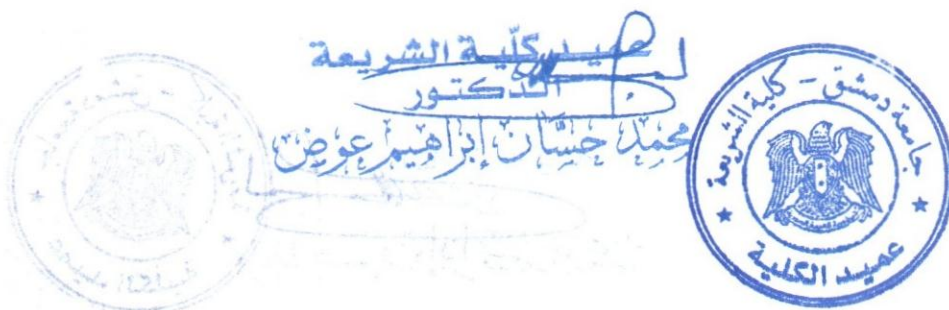 عميد كلّية الشريعة
الدكتور
محمد حسَّان إبراهيم عوض
جامعة دمشق - كلية الشريعة
عميد الكلية